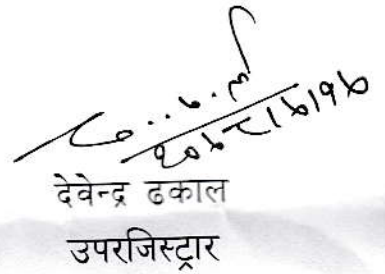 २०७८।७।१७
देवेन्द्र ढकाल
उपरजिस्ट्रार